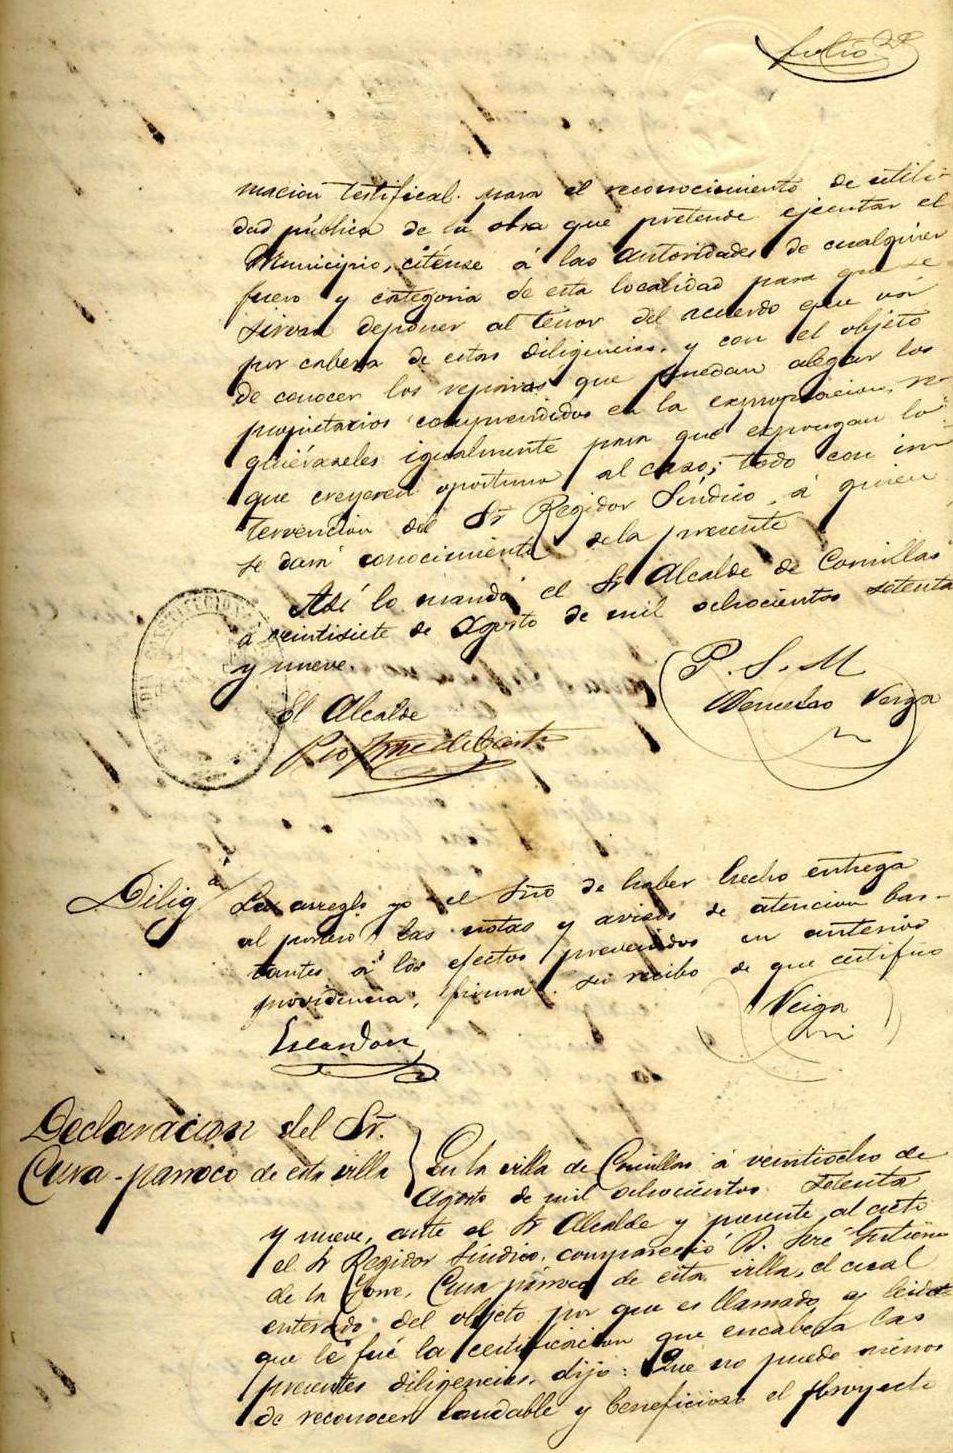 folio 2º
macion testifical para el reconocimiento de utili-
dad pública de la obra que pretende ejecutar el
Municipio, cítense á las autoridades de cualquier
fuero y categoria de esta localidad para que se
sirvan deponer al ténor del acuerdo que vá
por cabeza de estas diligencias, y con el objeto
de conocer los reparos que puedan alegar los
propietarios comprendidos en la expropiacion, re-
quiéraseles igualmente para que expongan lo
que creyeren oportuno al caso; todo con in-
tervencion del Sr Regidor Síndico, á quien
se dará conocimiento de la presente
Así lo mandó el Sr Alcalde de Comillas
á veintisiete de Agosto de mil ochocientos setenta
y nueve
P. S. M
El Alcalde
Wenceslao Veiga
Diliga
La arreglo yo el Srio de haber hecho entrega
al portero las notas y avisos de atencion bas-
tantes á los efectos prevenidos en anterior
providencia, firma su recibo de que certifico
Veiga
Escandon
Declaracion del Sr.
Cura-parroco de esta villa
En la villa de Comillas á veintiocho de
Agosto de mil ochocientos setenta
y nueve, ante el Sr Alcalde y presente al acto
el Sr Regidor Síndico, compareció D. José Gutierrez
de la Torre, Cura párroco de esta villa, el cual
enterado del objeto por que es llamado y leida
que le fué la certificacion que encabeza las
presentes diligencias, dijo: Que no puede ménos
de reconocer laudable y beneficioso el proyecto